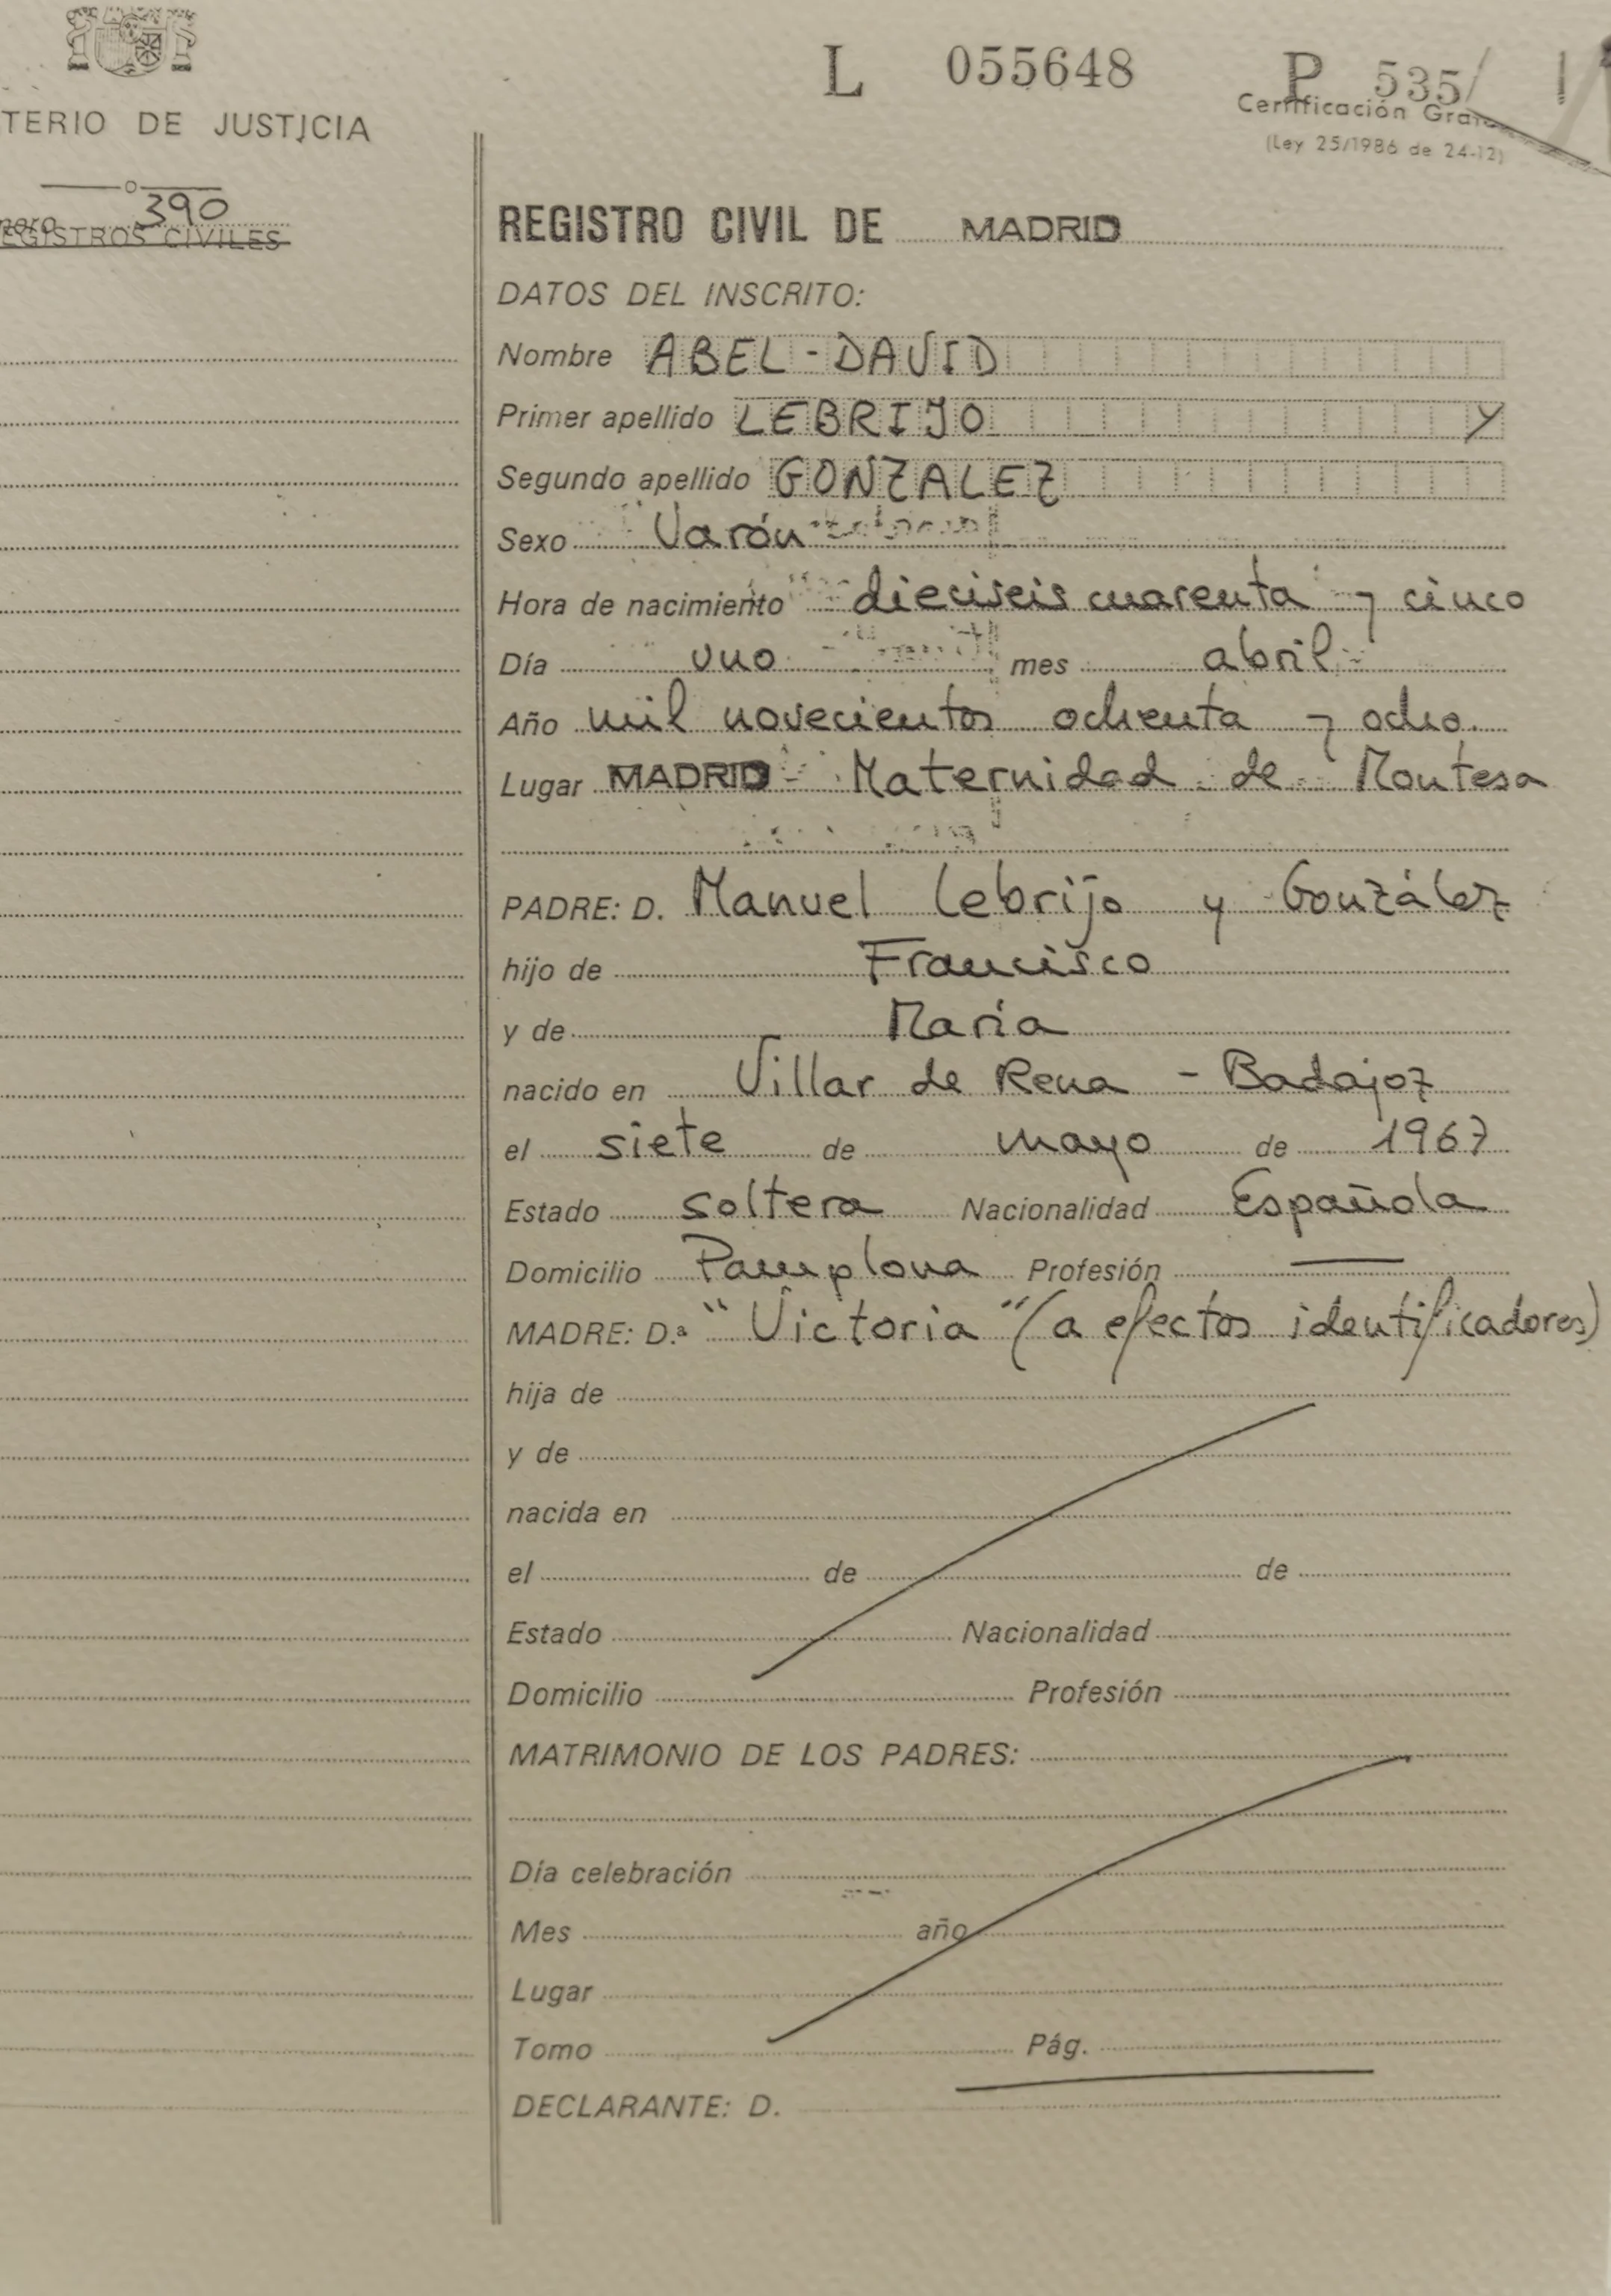 L 055648 P 535/
Certificación Gratuita
(Ley 25/1986 de 24-12)
TERIO DE JUSTICIA
390
EGISTROS CIVILES
REGISTRO CIVIL DE MADRID
DATOS DEL INSCRITO:
Nombre ABEL-DAVID
Primer apellido LEBRIJO Y
Segundo apellido GONZALEZ
Sexo Varón
Hora de nacimiento dieciseis cuarenta y cinco
Día uno mes abril
Año mil novecientos ochenta y ocho.
Lugar MADRID - Maternidad de Montesa
PADRE: D. Manuel Lebrijo y González
hijo de Francisco
y de María
nacido en Villar de Rena - Badajoz
el siete de mayo de 1967
Estado soltera Nacionalidad Española
Domicilio Pamplona Profesión —
MADRE: D.ª "Victoria" (a efectos identificadores)
hija de
y de
nacida en
el de de
Estado Nacionalidad
Domicilio Profesión
MATRIMONIO DE LOS PADRES:
Día celebración
Mes año
Lugar
Tomo Pág.
DECLARANTE: D.